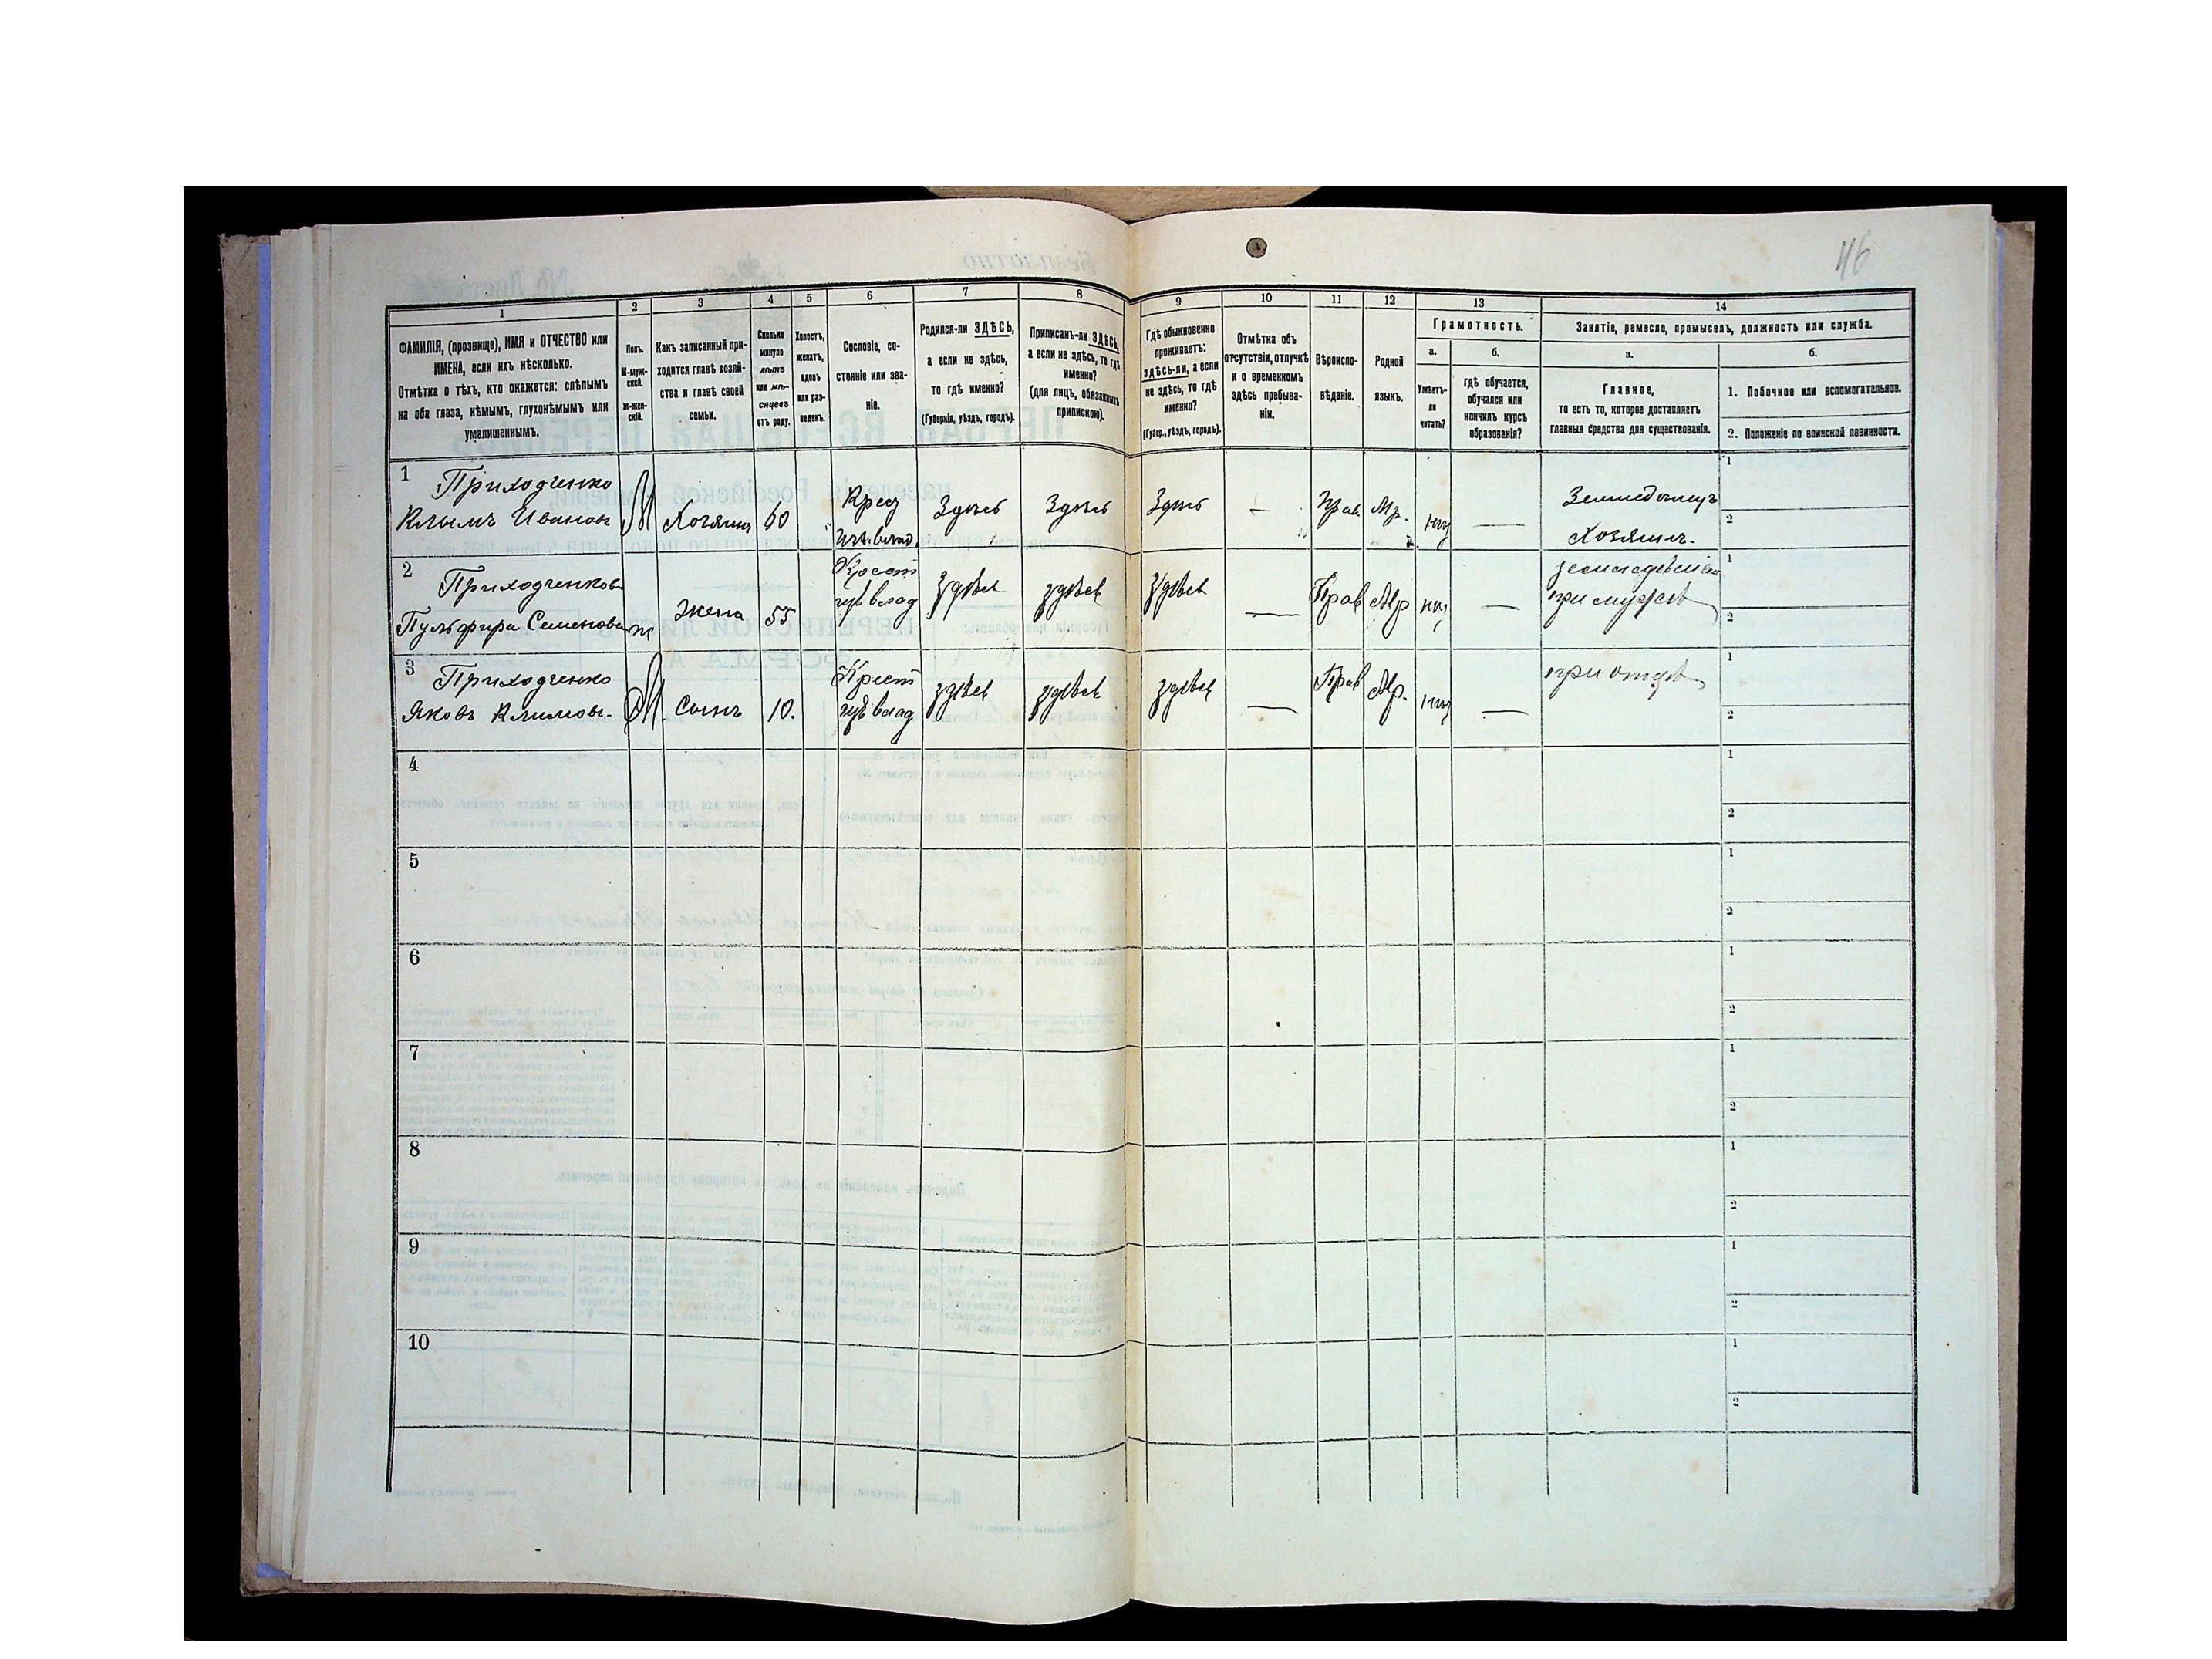 46
1
2
3
4
5
6
7
8
9
10
11
12
13
14
ФАМИЛІЯ, (прозвище), ИМЯ и ОТЧЕСТВО или
ИМЕНА, если ихъ нѣсколько.
Отмѣтка о тѣхъ, кто окажется: слѣпымъ
на оба глаза, нѣмымъ, глухонѣмымъ или
умалишеннымъ.
Полъ.
М-муж-
ской.
ж-жен-
скій.
Какъ записанный при-
ходится главѣ хозяй-
ства и главѣ своей
семьи.
Сколько
минуло
лѣтъ
или мѣ-
сяцевъ
отъ роду.
Холостъ,
женатъ,
вдовъ
или раз-
веденъ.
Сословіе, со-
стояніе или зва-
ніе.
Родился-ли ЗДѢСЬ,
а если не здѣсь,
то гдѣ именно?
(Губернія, уѣздъ, городъ).
Приписанъ-ли ЗДѢСЬ,
а если не здѣсь, то гдѣ
именно?
(для лицъ, обязанныхъ
припискою).
Гдѣ обыкновенно
проживаетъ:
здѣсь-ли, а если
не здѣсь, то гдѣ
именно?
(Губер., уѣздъ, городъ).
Отмѣтка объ
отсутствіи, отлучкѣ
и о временномъ
здѣсь пребыва-
ніи.
Вѣроиспо-
вѣданіе.
Родной
языкъ.
Грамотность.
а.
б.
Умѣетъ-
ли
читать?
гдѣ обучается,
обучался или
кончилъ курсъ
образованія?
Занятіе, ремесло, промыселъ, должность или служба.
а.
б.
Главное,
то есть то, которое доставляетъ
главныя средства для существованія.
1. Побочное или вспомогательное.
2. Положеніе по воинской повинности.
1 Приходченко
Климъ Ивановъ
М
Хозяинъ
60
Здѣсь
Здѣсь
Здѣсь
—
Прав.
Мр.
—
Хозяинъ.
1
2
2 Приходченкова
Семенова
ж
жена
55
Крест
здѣсь
здѣсь
здѣсь
—
Прав
Мр
—
при мужѣ
1
2
3 Приходченко
Яковъ Климовъ.
М.
сынъ
10.
Крест
здѣсь
здѣсь
здѣсь
—
Прав
Мр.
—
при отцѣ
1
2
4
1
2
5
1
2
6
1
2
7
1
2
8
1
2
9
1
2
10
1
2